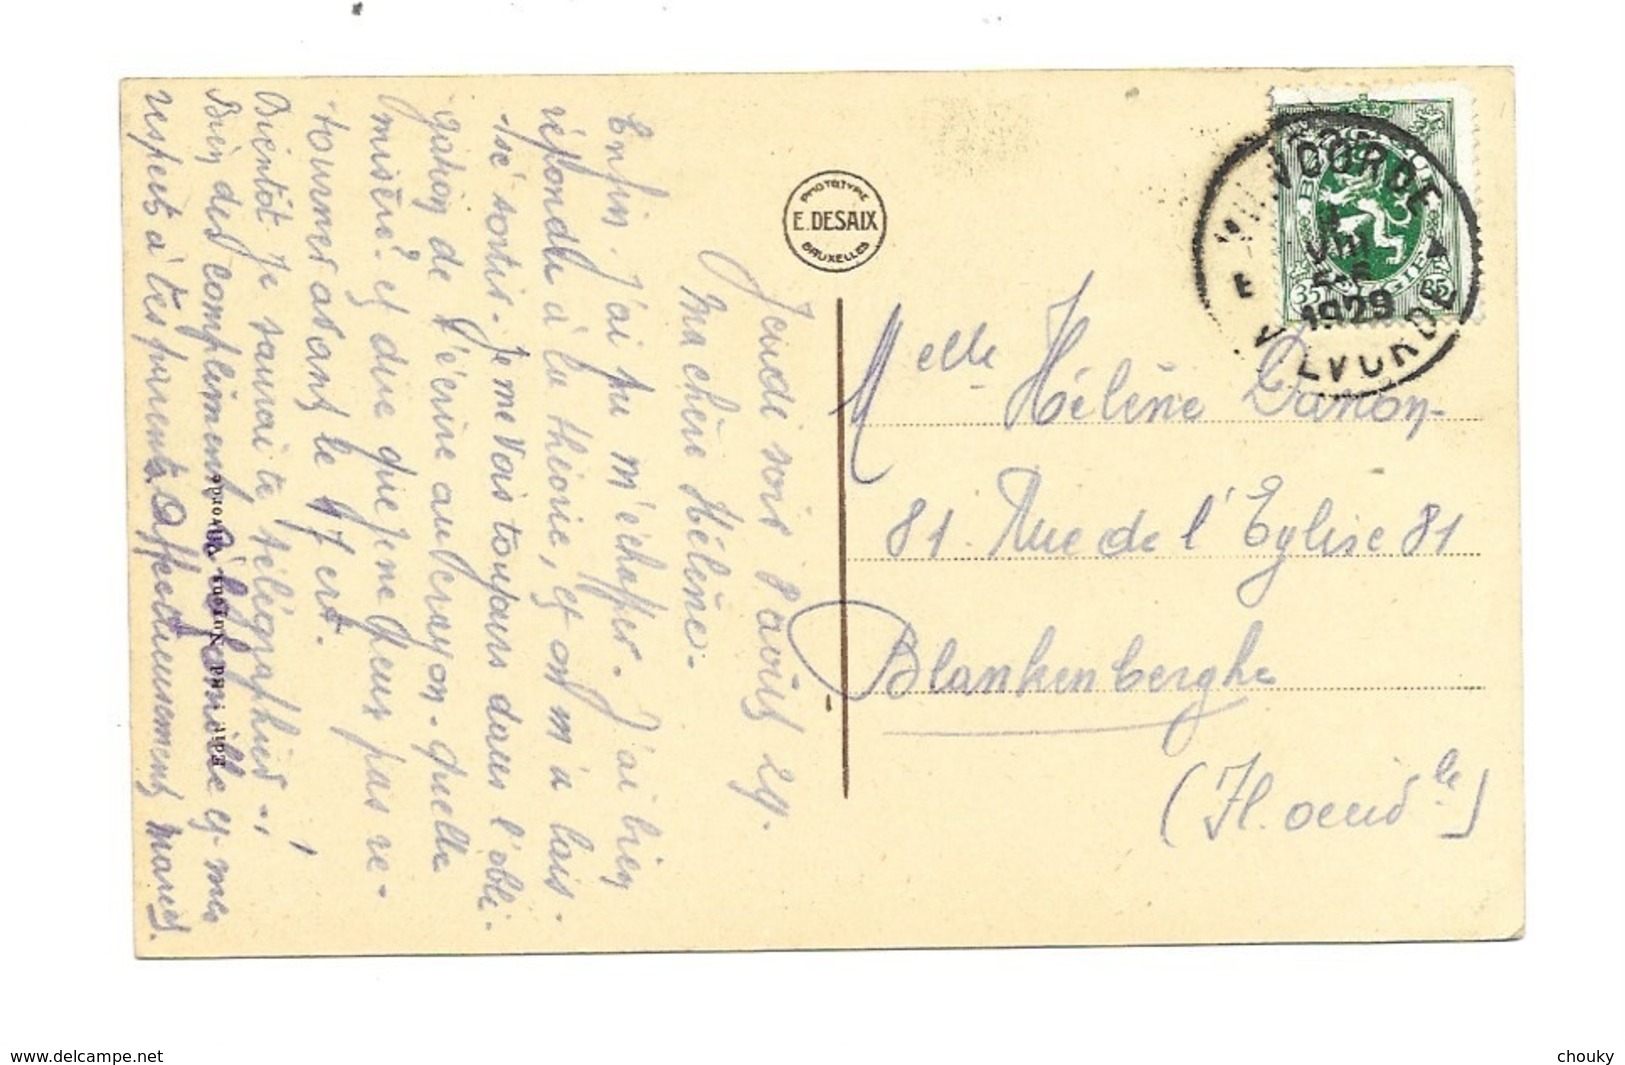 Jeudi soir 1 août 29.
Ma chère Hélène.
Enfin. J'ai pu m'échaper. J'ai bien
répondu à la théorie, et on m'a lais-
-sé sortir. Je me vois toujours dans l'obli-
gation de t'écrire au crayon. quelle
misère! et dire que je ne peux pas re-
tourner avant le 17 ert.
Bientôt je saurai te télégraphier.
Bien des compliments à la famille et mes
respects à tes parents. Affectueusement Marcel.
Edit. Ph. Nutons Vilvorde
PHOTOTYPE
E. DESAIX
BRUXELLES
VILVOORDE
1929
VILVORDE
BELGIQUE
BELGIE
35 35
Melle Hélène Danon
81. Rue de l'Eglise 81
Blankenberghe
(Fl. occid le)
www.delcampe.net
chouky